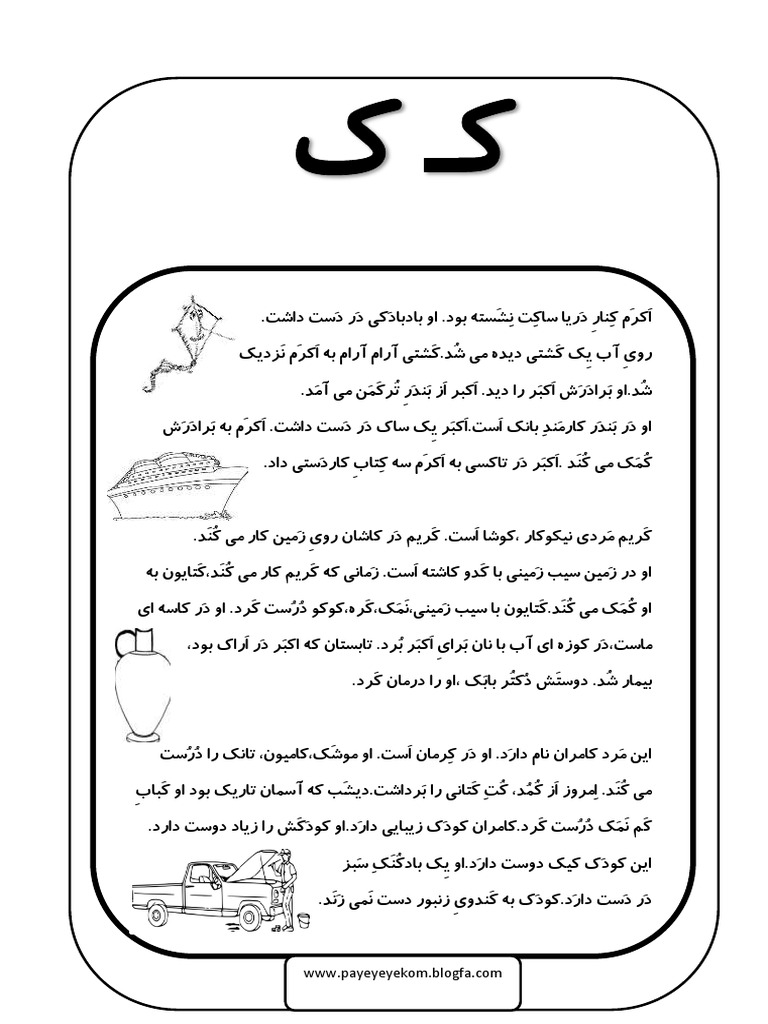 کـ ک
اَکرَم کِنارِ دَریا ساکِت نِشَسته بود. او بادبادَکی دَر دَست داشت.
رویِ آب یِک کَشتی دیده می شُد.کَشتی آرام آرام به اَکرَم نَزدیک
شُد.او بَرادَرَش اَکبَر را دید. اَکبر اَز بَندَرِ تُرکَمَن می آمَد.
او دَر بَندَر کارمَندِ بانک اَست.اَکبَر یِک ساک دَر دَست داشت. اَکرَم به بَرادَرَش
کُمَک می کُنَد .اَکبَر دَر تاکسی به اَکرَم سه کِتابِ کاردَستی داد.
کَریم مَردی نیکوکار ،کوشا اَست. کَریم دَر کاشان رویِ زَمین کار می کُنَد.
او در زَمین سیب زَمینی با کَدو کاشته اَست. زَمانی که کَریم کار می کُنَد،کَتایون به
او کُمَک می کُنَد.کَتایون با سیب زَمینی،نَمَک،کَره،کوکو دُرُست کَرد. او دَر کاسه ای
ماست،دَر کوزه ای آب با نان بَرایِ اَکبَر بُرد. تابستان که اکبَر دَر اَراک بود،
بیمار شُد. دوستَش دُکتُر بابَک ،او را درمان کَرد.
این مَرد کامران نام دارَد. او دَر کِرمان اَست. او موشَک،کامیون، تانک را دُرُست
می کُنَد. اِمروز اَز کُمُد، کُتِ کَتانی را بَرداشت.دیشَب که آسمان تاریک بود او کَبابِ
کَم نَمَک دُرُست کَرد.کامران کودَک زیبایی دارَد.او کودَکَش را زیاد دوست دارد.
این کودَک کیک دوست دارَد.او یِک بادکُنَکِ سَبز
دَر دَست دارَد.کودَک به کَندویِ زنبور دست نَمی زَنَد.
www.payeyeyekom.blogfa.com